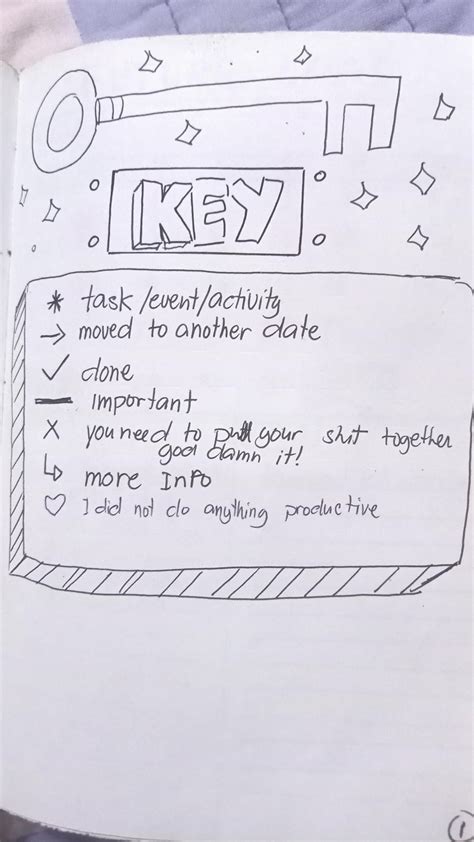 KEY
* task/event/activity
→ moved to another date
✓ done
— important
X you need to pull your shit together
god damn it!
↳ more Info
♡ I did not do anything productive
1